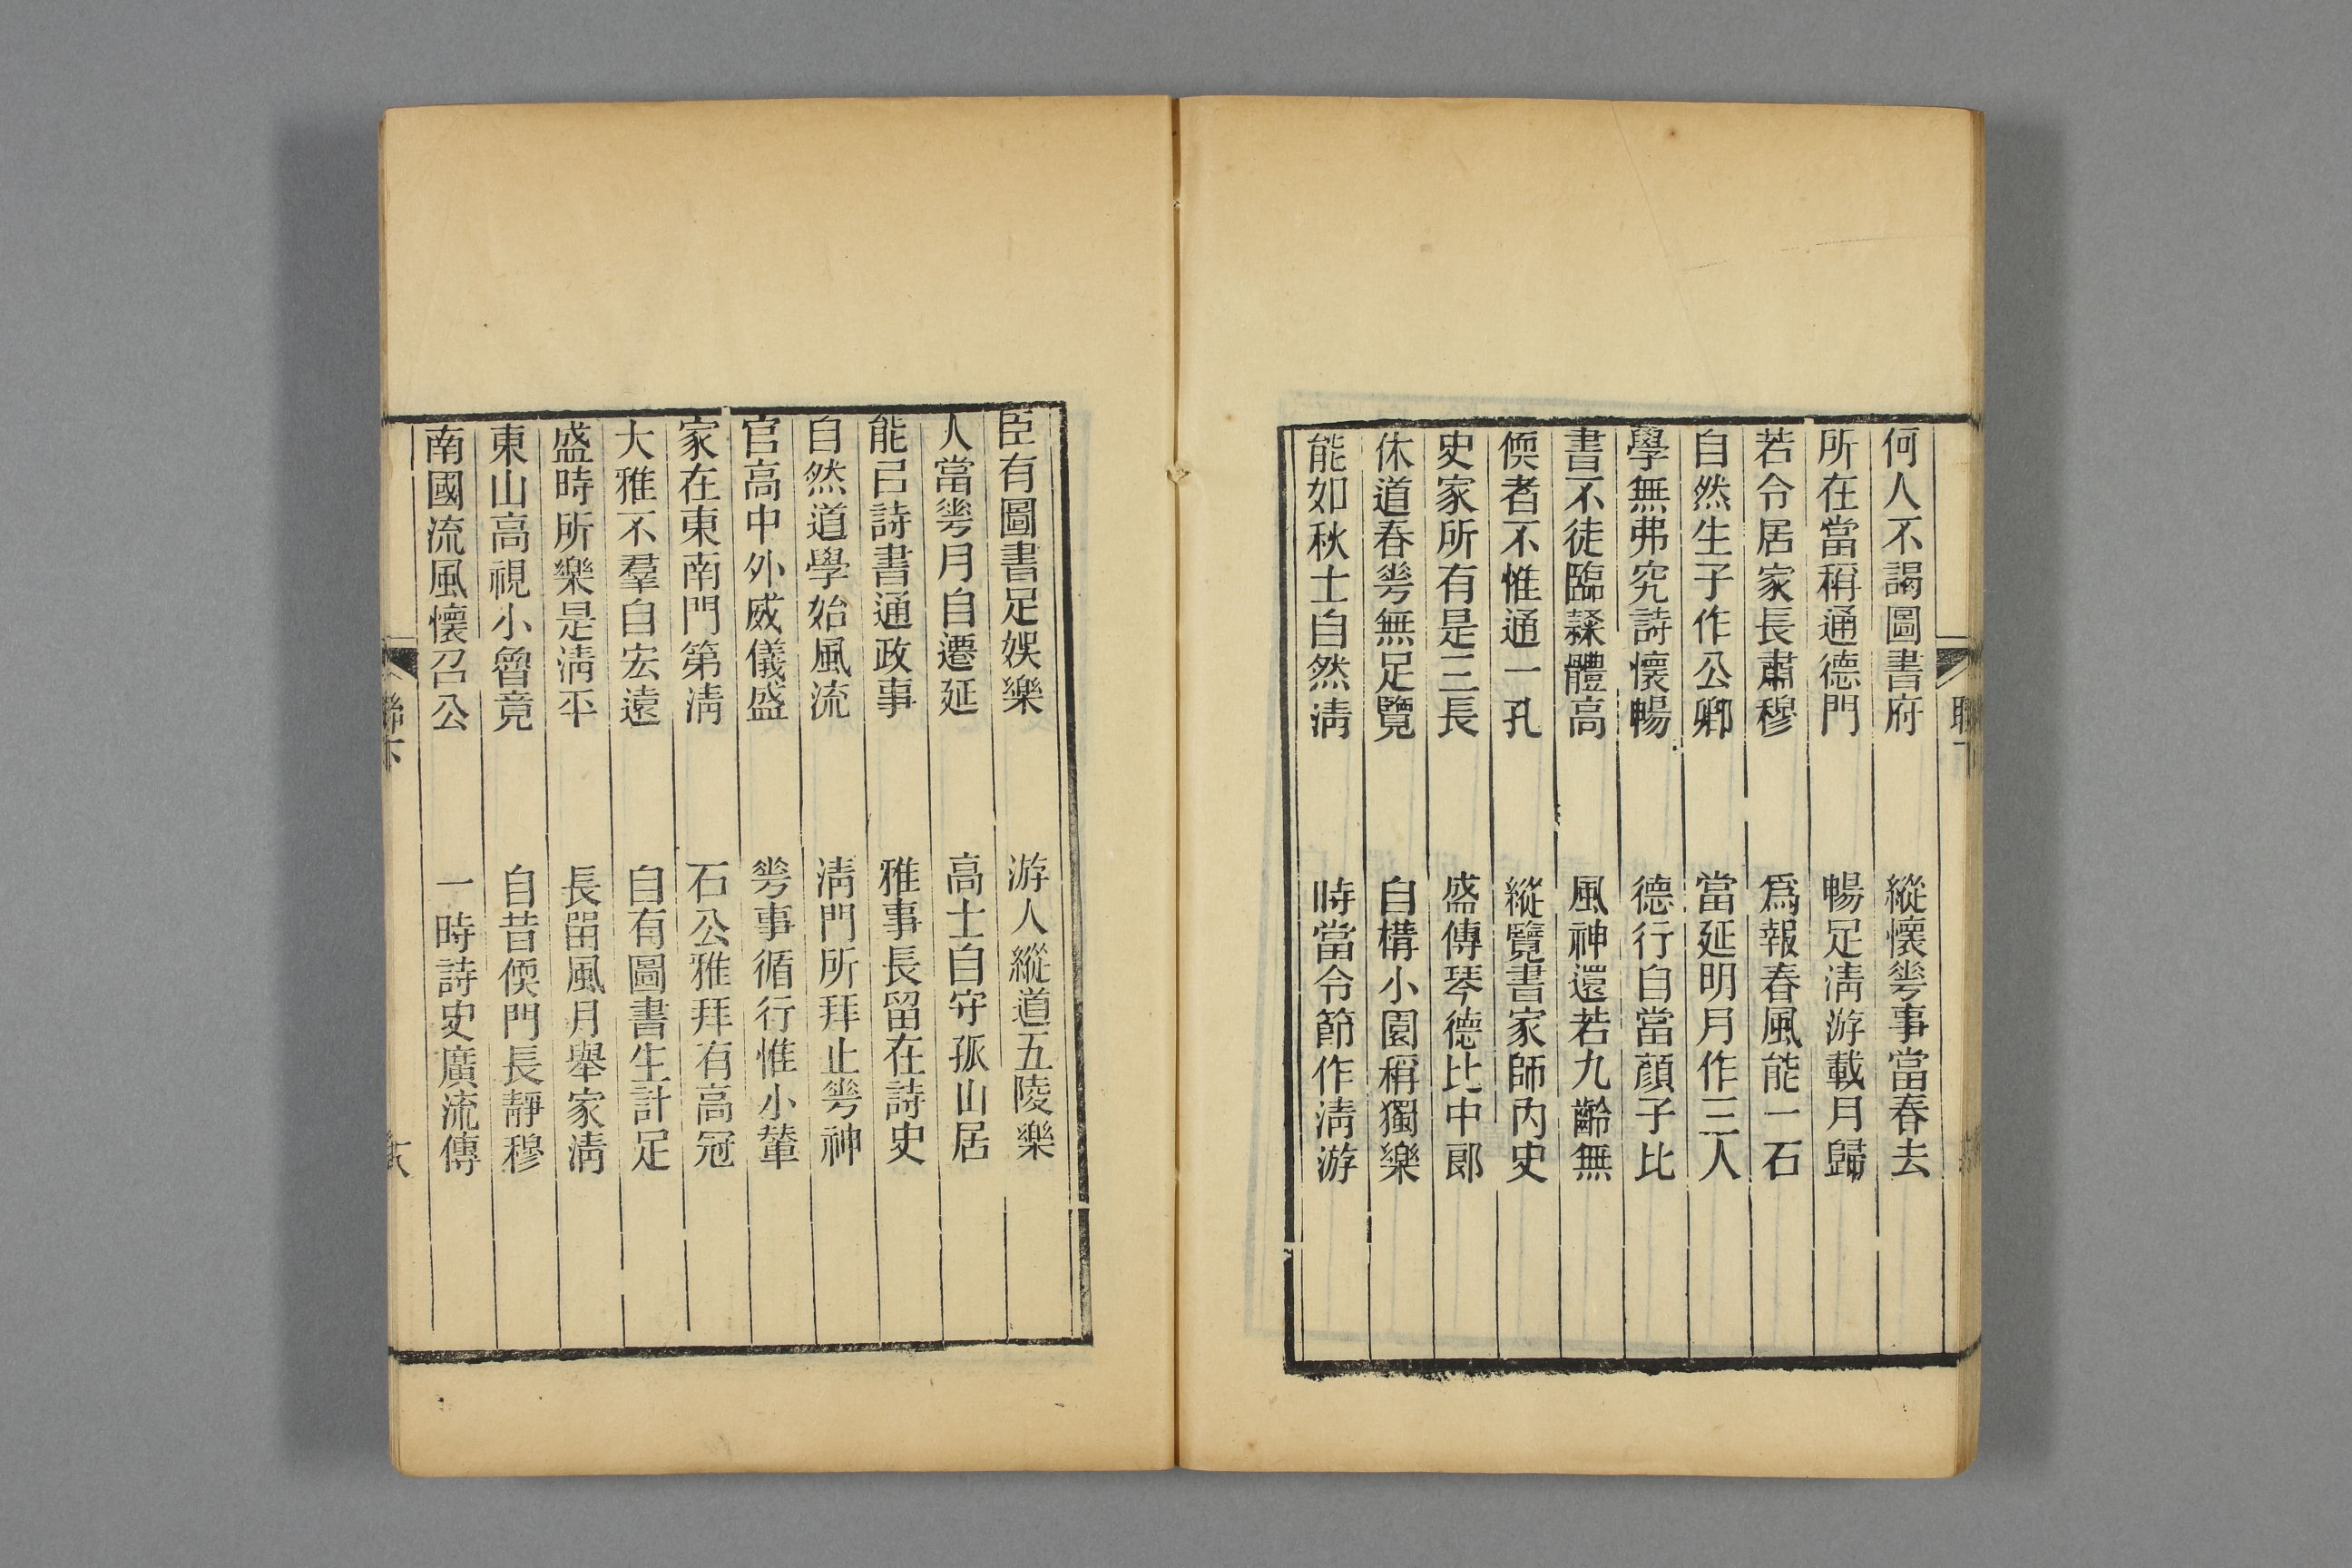 何人不謁圖書府　縱懷崋事當春去
所在當稱通德門　暢足淸游載月歸
若令居家長肅穆　爲報春風能一石
自然生子作公卿　當延明月作三人
學無弗究詩懷暢　德行自當顏子比
書不徒臨隸體高　風神還若九齡無
偄者不惟通一孔　縱覽書家師內史
史家所有是三長　盛傳琴德比中郎
休道春崋無足覽　自構小園稱獨樂
能如秋士自然淸　時當令節作淸游
臣有圖書足娛樂　游人縱道五陵樂
人當崋月自遷延　高士自守孤山居
能㠯詩書通政事　雅事長留在詩史
自然道學始風流　淸門所拜止崋神
官高中外威儀盛　崋事循行惟小輦
家在東南門第淸　石公雅拜有高冠
大雅不羣自宏遠　自有圖書生計足
盛時所樂是淸平　長留風月舉家淸
東山高視小魯竟　自昔偄門長靜穆
南國流風懷召公　一時詩史廣流傳
聯下